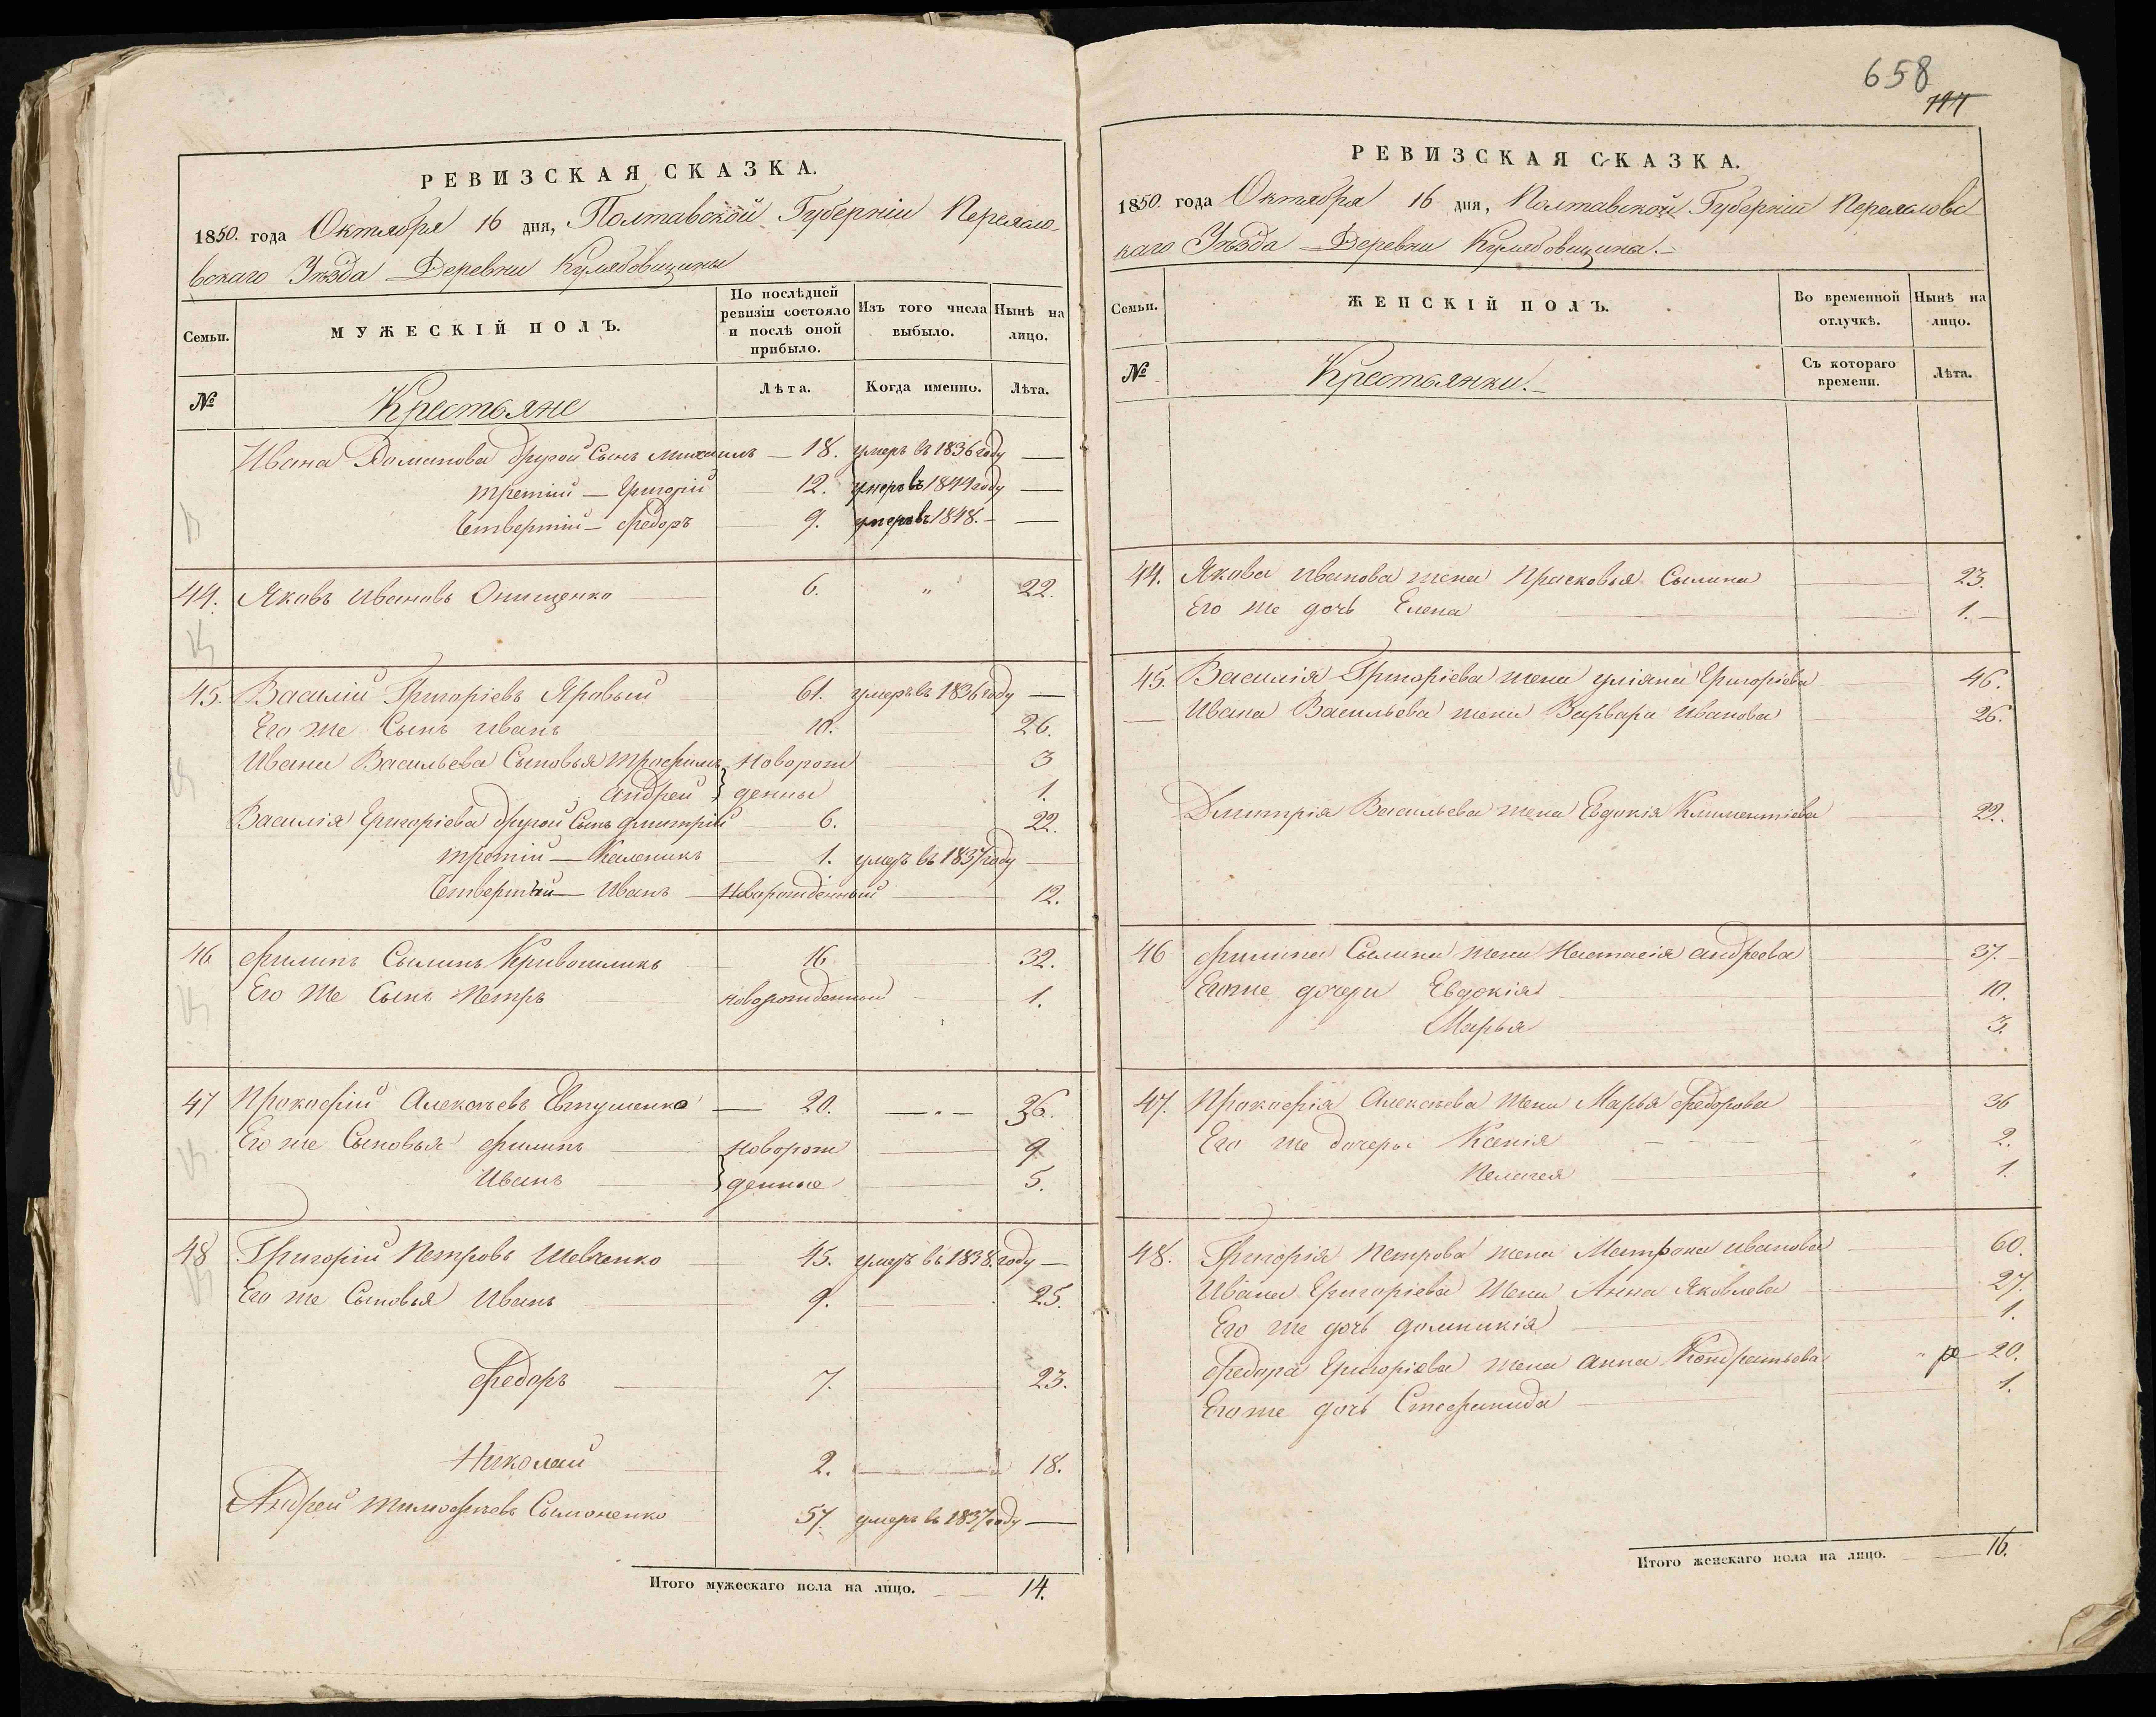 658
РЕВИЗСКАЯ СКАЗКА.
1850. года Октября 16 дня, Полтавской Губерніи Переясло-
вскаго Уѣзда Деревни Кулябовщины
Семьи.
МУЖЕСКІЙ ПОЛЪ.
По послѣдней ревизіи состояло и послѣ оной прибыло.
Изъ того числа выбыло.
Нынѣ на лицо.
№
Крестьяне
Лѣта.
Когда именно.
Лѣта.
Ивана Романова другой Сынъ Михаилъ — 18. умеръ въ 1836 году —
третій — Григорій 12. умеръ въ 1844 году —
Четвертій — Федоръ 9. умеръ въ 1848. — —
44. Яковъ Ивановъ Онищенко 6. " 22.
45. Василій Григоріевъ Яровый 61. умеръ въ 1836 году —
Его же Сынъ Иванъ 10. 26.
Ивана Васильева Сыновья Трофимъ Новорож 3
Андрей } денны 1.
Василія Григоріева другой Сынъ Дмитрій 6. 22.
третій — Каленикъ 1. умеръ въ 1837 году —
Четвертый — Иванъ — Новорожденный 12.
46 Филипъ Сылинъ Кривошликъ 16 32.
Его же Сынъ Петръ новорожденный 1.
47 Прокофій Алексѣевъ Евтушенко — 20. —"— 36.
Его же Сыновья Филипъ Новорож 9
Иванъ } денные 5.
48 Григорій Петровъ Шевченко 45. умеръ въ 1838. году —
Его же Сыновья Иванъ 9. 25.
Федоръ 7. 23.
Николай 2. 18.
Андрей Тимофѣевъ Сымоненко 57. умеръ въ 1837 году —
Итого мужескаго пола на лицо. 14.
РЕВИЗСКАЯ СКАЗКА.
1850. года Октября 16 дня, Полтавской Губерніи Переяславс
каго Уѣзда Деревни Кулябовщина. —
Семьи.
ЖЕНСКІЙ ПОЛЪ.
Во временной отлучкѣ.
Нынѣ на лицо.
№
Крестьянки. —
Съ котораго времени.
Лѣта.
44. Якова Иванова жена Прасковья Сылина 23.
Его же дочь Елена 1. —
45. Василія Григоріева жена Уліяна Григоріева 46.
— Ивана Васильева жена Варвара Иванова 26.
Дмитрія Васильева жена Евдокія Климентіева 22.
46 Филипа Сылина жена Настасія Андреева 37. —
Его же дочери Евдокія 10.
Марья 3.
47. Прокофія Алексѣева жена Марья Федорова 36
Его же дочеры Ксенія " 2.
Пелагея " 1.
48. Григорія Петрова жена Матрона Иванова 60.
Ивана Григоріева жена Анна Яковлева 27.
Его же дочь Домникія 1.
Федора Григоріева жена Анна Кондратьева " 20.
Его же дочь Стефанида 1.
Итого женскаго пола на лицо. 16.